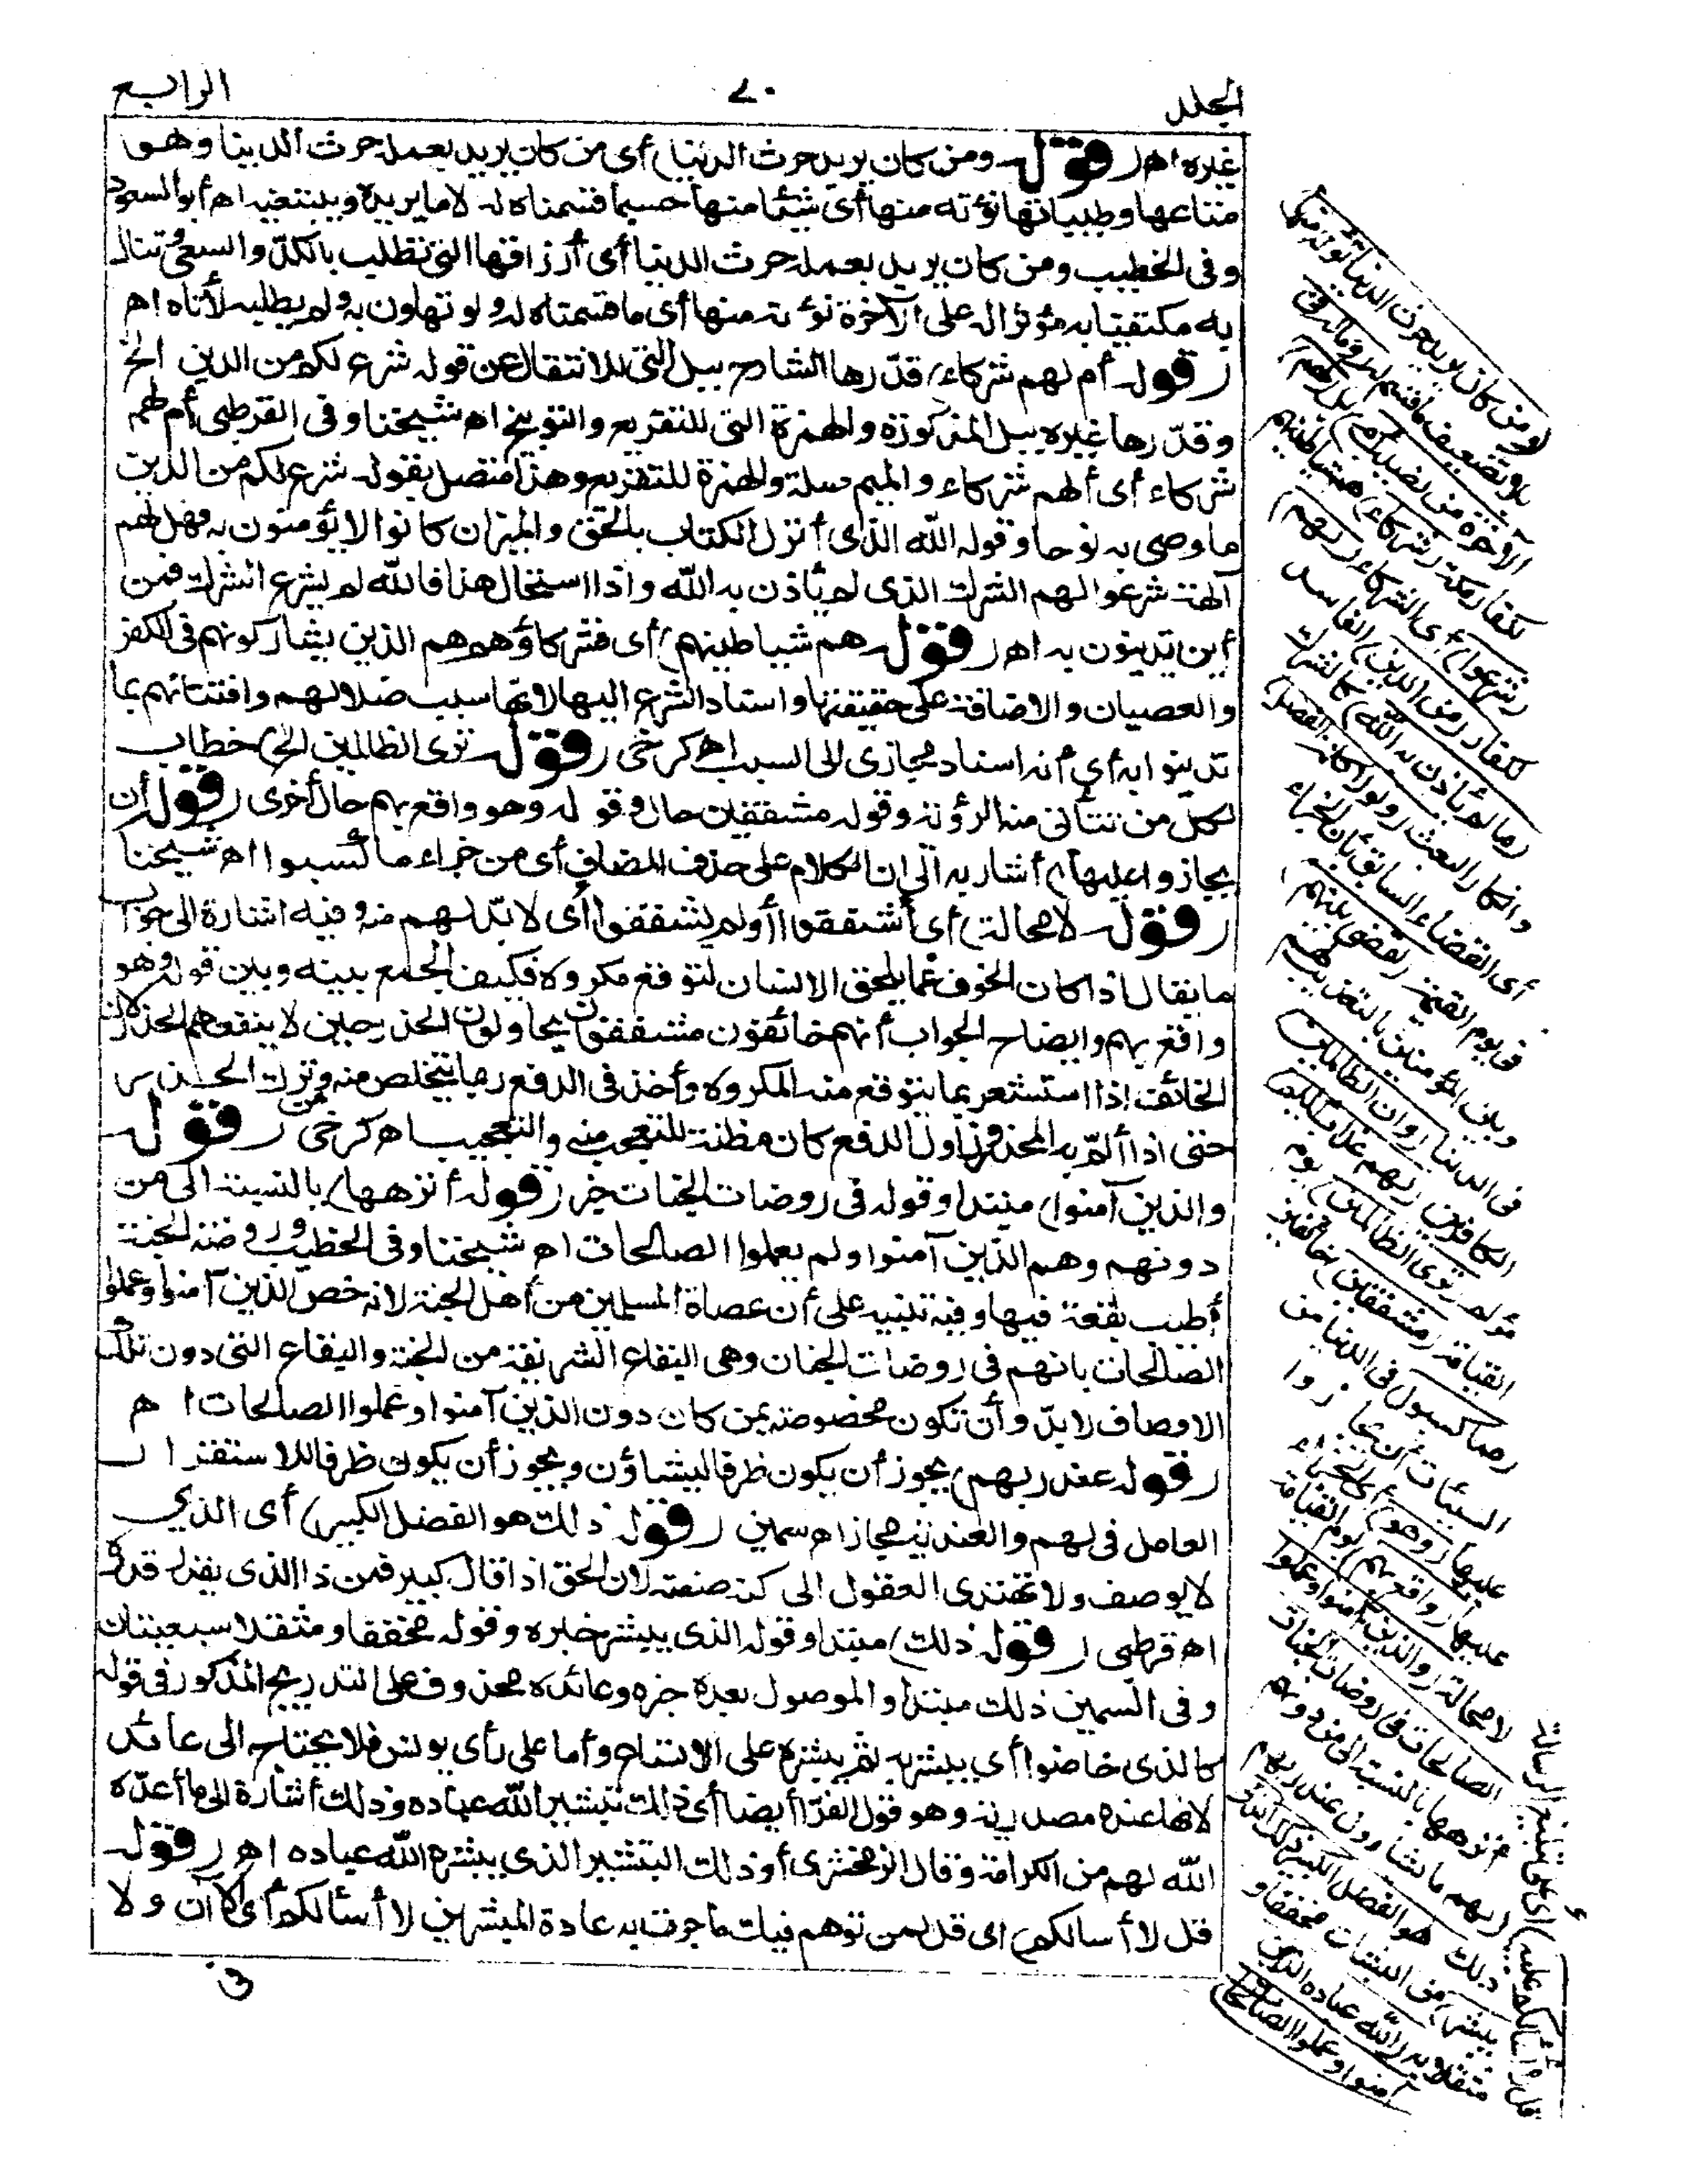 الجلد ٧٠ الرابع
غيره اهـ (قوله ومن كان يريد حرث الدنيا) أى من كان يريد بعمله حرث الدنيا وهو
متاعها وطيباتها نؤته منها أى شيئا منها حسبما قسمناه له لا ما يريده ويبتغيه اهـ أبو السعود
وفى الخطيب ومن كان يريد بعمله حرث الدنيا أى أرزاقها التى تطلب بالكدّ والسعى وتنال
به مكتفيا به مؤثرا له على الآخرة نؤته منها أى ما قسمناه له ولو تهاون به ولم يطلبه لأتاه اهـ
(قوله أم لهم شركاء) قدّرها الشارح ببل التى للانتقال عن قوله شرع لكم من الدين الخ
وقدّرها غيره ببل المذكورة والهمزة التى للتقريع والتوبيخ اهـ شيخنا وفى القرطبى أم لهم
شركاء أى ألهم شركاء والميم صلة والهمزة للتقريع وهذا متصل بقوله شرع لكم من الدين
ما وصى به نوحا وقوله الله الذى أنزل الكتاب بالحق والميزان كانوا لا يؤمنون به فهل لهم
آلهة شرعوا لهم الشرك الذى لم يأذن به الله واذا استحال هذا فالله لم يشرع الشرك فمن
أين تدينون به اهـ (قوله هم شياطينهم) أى فشركاؤهم هم الذين يشاركونهم فى الكفر
والعصيان والاضافة على حقيقتها واسناد الشرع اليها لانها سبب ضلالهم وافتتانهم بما
تدينوا به أى أنه اسناد مجازى الى السبب اهـ كرخى (قوله ترى الظالمين الخ) خطاب
لكل من تتأتى منه الرؤية وقوله مشفقين حال وقوله وهو واقع بهم حال أخرى (قوله أن
يجازوا عليها) أشار به الى ان الكلام على حذف المضاف أى من جزاء ما كسبوا اهـ شيخنا
(قوله لا محالة) أى أشفقوا أو لم يشفقوا أى لا بدّ لهم منه وفيه اشارة الى جواب
ما يقال اذا كان الخوف غما يلحق الانسان لتوقع مكروه فكيف الجمع بينه وبين قوله وهو
واقع بهم وايضاح الجواب أنهم خائفون مشفقون يحاولون الحذر حين لا ينفعهم الحذر لان
الخائف اذا استشعر بما يتوقع منه المكروه وأخذ فى الدفع ربما يتخلص منه ومن ترك الحذر
حتى اذا ألمّ به المحذور زاول الدفع كان مظنة للتعجب منه والتعجيب اهـ كرخى (قوله
والذين آمنوا) مبتدا وقوله فى روضات الجنات خبر (قوله أنزهها) بالنسبة الى من
دونهم وهم الذين آمنوا ولم يعملوا الصالحات اهـ شيخنا وفى الخطيب وروضة الجنة
أطيب بقعة فيها وفيه تنبيه على أن عصاة المسلمين من أهل الجنة لانه خص الذين آمنوا وعملوا
الصالحات بانهم فى روضات الجنان وهى البقاع الشريفة من الجنة والبقاع التى دون تلك
الاوصاف لا بدّ وأن تكون مخصوصة بمن كان دون الذين آمنوا وعملوا الصالحات اهـ
(قوله عند ربهم) يجوز أن يكون ظرفا ليشاؤن ويجوز أن يكون ظرفا للاستقرار
العامل فى لهم والعندية مجاز اهـ سمين (قوله ذلك هو الفضل الكبير) أى الذى
لا يوصف ولا تهتدى العقول الى كنه صفته لان الحق اذا قال كبير فمن ذا الذى يقدر قدره
اهـ قرطبى (قوله ذلك) مبتدا وقوله الذى يبشر خبره وقوله مخففا ومثقلا سبعيتان
وفى السمين ذلك مبتدأ والموصول بعده خبره وعائده محذوف على التدريج المذكور فى قوله
كالذى خاضوا أى يبشر به ثم يبشره على الاتساع وأما على رأى يونس فلا يحتاج الى عائد
لانها عنده مصدرية وهو قول الفرّا أيضا أى ذلك تبشير الله عباده وذلك أشارة الى ما أعدّه
الله لهم من الكرامة وقال الزمخشرى أو ذلك التبشير الذى يبشره الله عباده اهـ (قوله
قل لا أسالكم) اى قل لمن توهم فيك ما جرت به عادة المبشرين لا أسالكم أى الآن ولا
فى
(ومن كان يريد حرث الدنيا نؤته منها)
بلا تضعيف ما قسم له (وما له فى
الآخرة من نصيب أم) بل (لهم)
لكفار مكة (شركاء) هم شياطينهم
(شرعوا) أى الشركاء (لهم)
للكفار (من الدين) الفاسد
(ما لم يأذن به الله) كالشرك
وانكار البعث (ولولا كلمة الفصل)
أى القضاء السابق بأن الجزاء
فى يوم القيمة (لقضى بينهم)
وبين المؤمنين بالتعذيب لهم
فى الدنيا (وان الظالمين)
الكافرين (لهم عذاب أليم)
مؤلم (ترى الظالمين) يوم
القيامة (مشفقين) خائفين
(مما كسبوا) فى الدنيا من
السيئات أن يجازوا
عليها (وهو) أى الجزاء
عليها (واقع بهم) يوم القيامة
لا محالة (والذين آمنوا وعملوا
الصالحات فى روضات الجنات)
أنزهها بالنسبة الى من دونهم
(لهم ما يشاؤن عند ربهم
ذلك هو الفضل الكبير ذلك الذى
يبشر) من البشارة مخففا و
مثقلا به (الله عباده الذين
آمنوا وعملوا الصالحات
قل لا أسألكم عليه) أى على تبليغ الرسالة